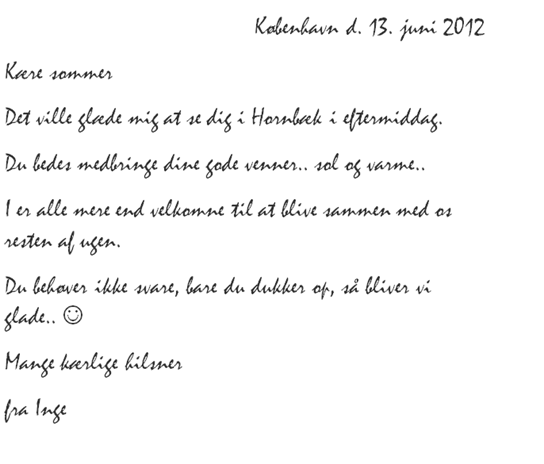 København d. 13. juni 2012
Kære sommer
Det ville glæde mig at se dig i Hornbæk i eftermiddag.
Du bedes medbringe dine gode venner.. sol og varme..
I er alle mere end velkomne til at blive sammen med os
resten af ugen.
Du behøver ikke svare, bare du dukker op, så bliver vi
glade.. ☺
Mange kærlige hilsner
fra Inge